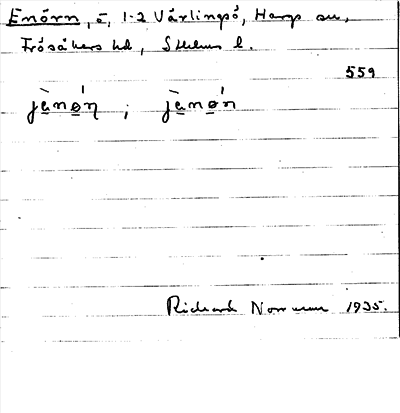 Enörn, ö, 1-2 Vårlingsö, Hargs sn,
Frösåkers hd, Sthlms l.
559
jὰnøń ; jὰnøń
Richard Norrman 1935.